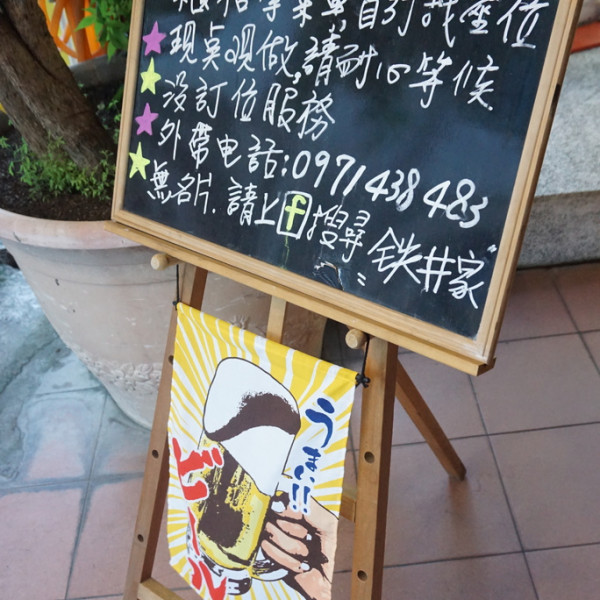 自訂找座位
現桌現做,請耐心等候.
沒訂位服務
外帶电話:0971438483
無名片.請上f搜尋"鉄丼家"
うまい!!
ビール